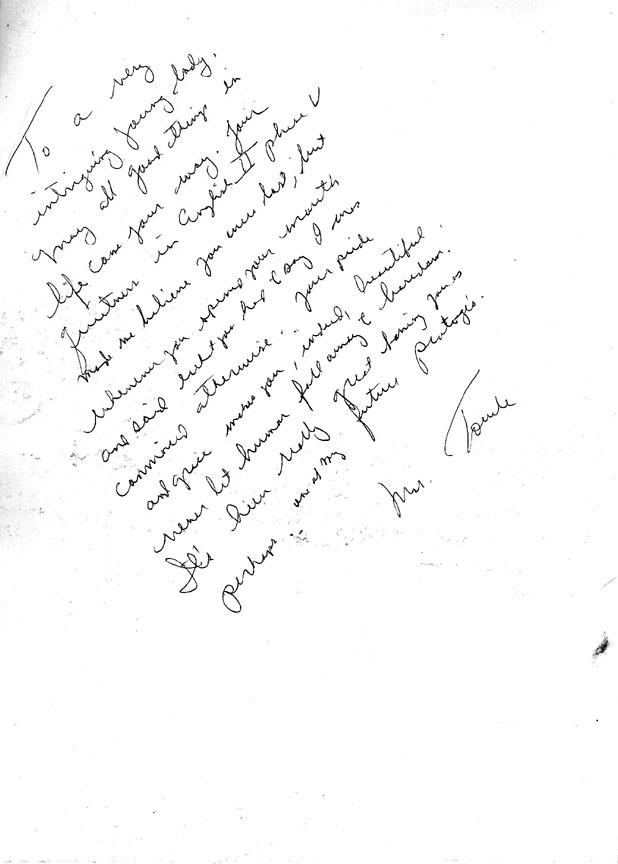 To a very
intriguing young lady.
May all good things in
life come your way. Your
quietness in English II phase V
made me believe you were lost, but
whenever you opened your mouth
and said I was
convinced otherwise. Your pride
and grace makes you, indeed, beautiful.
Never let humor fall away &
It's been really great having you as
perhaps one of my future protegés.
Mrs. Towle